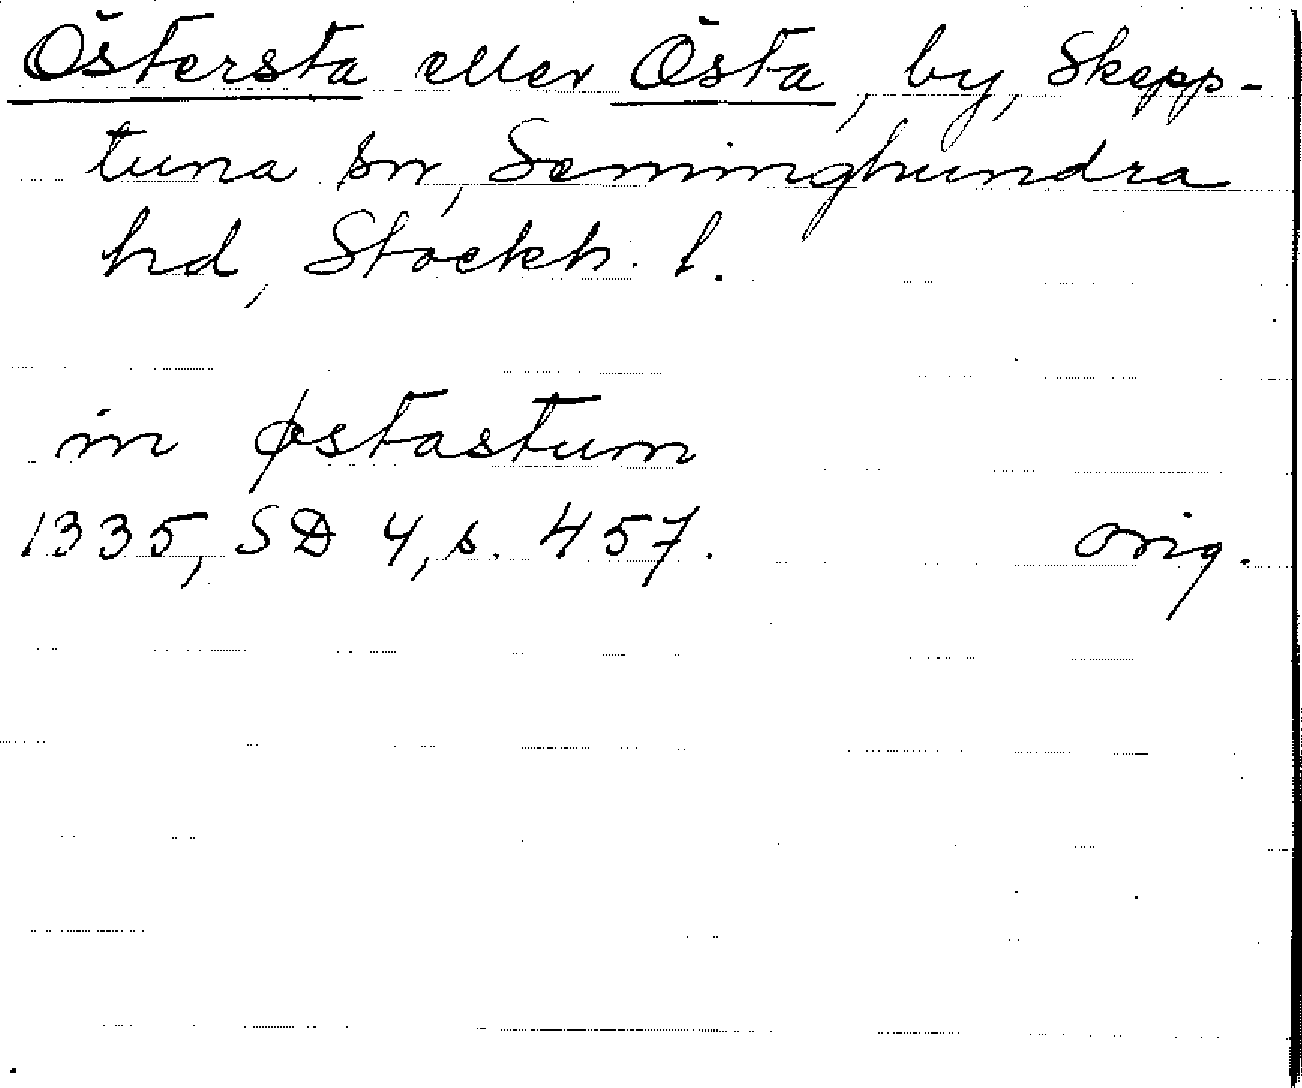 Östersta eller Östa, by, Skepp-
tuna sn, Seminghundra
hd, Stockh. l.
in østastum
1335, SD 4, s. 457. orig.